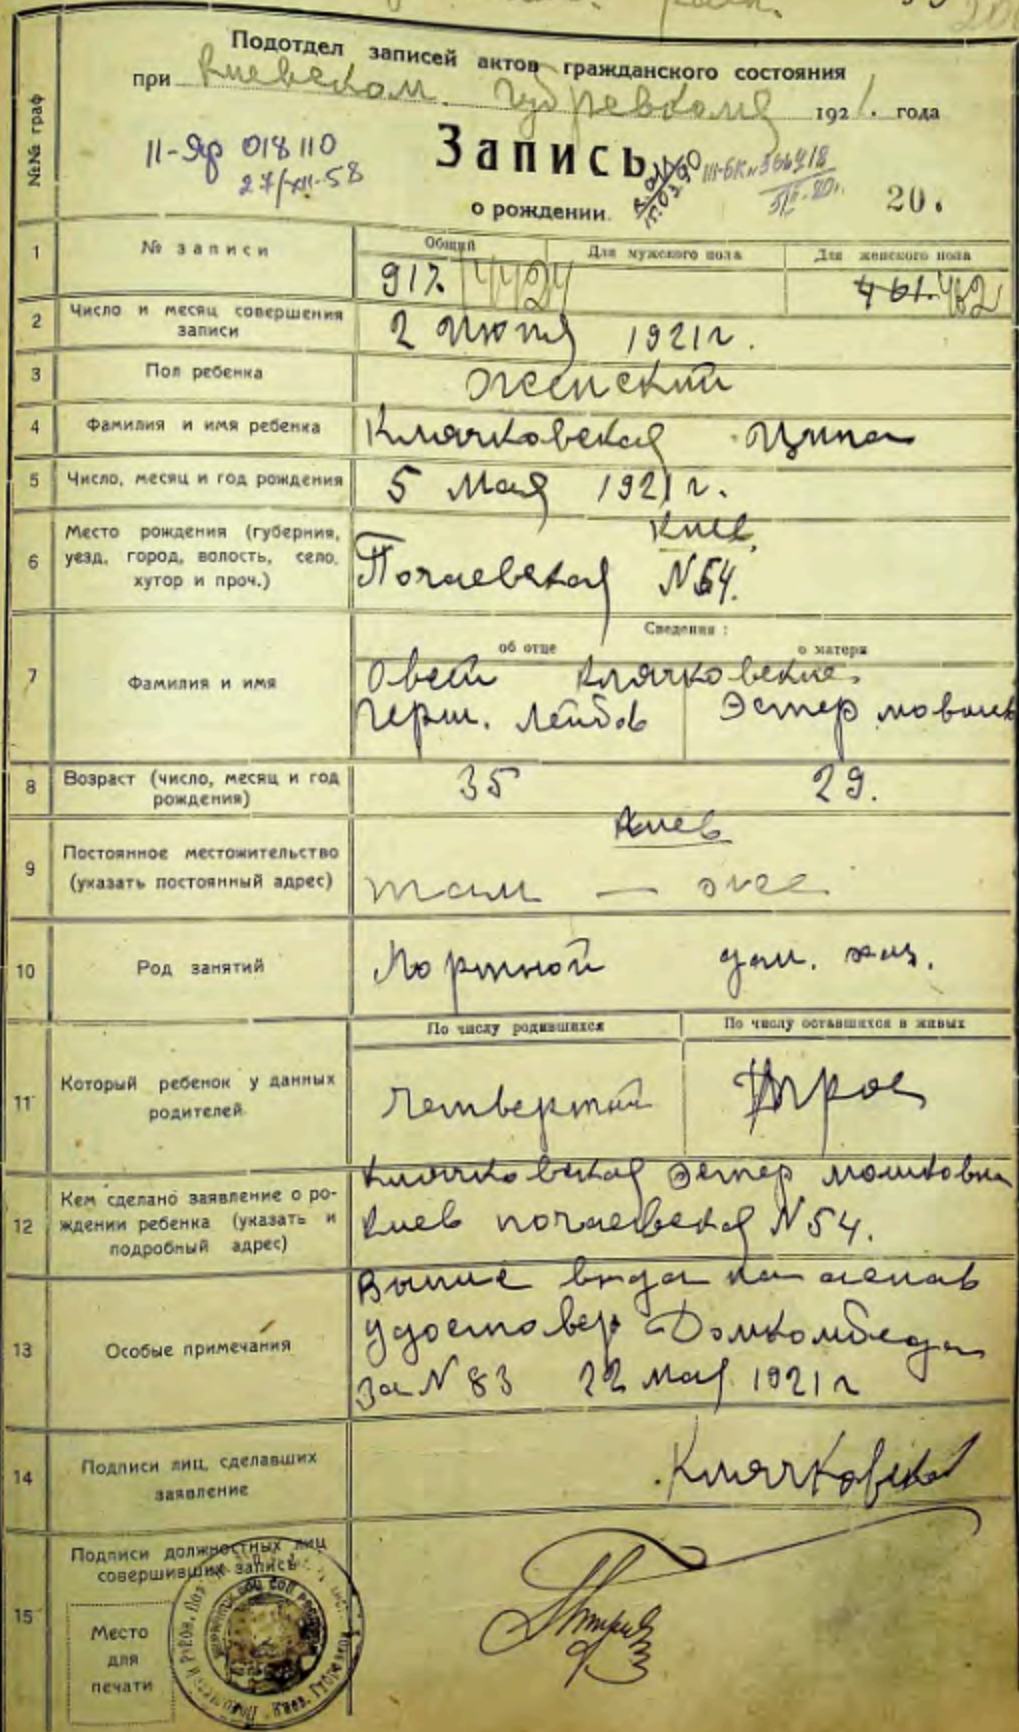 Подотдел записей актов гражданского состояния
при Киевском Губревкоме 1921. года
№№ граф
II-Яр 018110
27/XII-58
Запись
о рождении.
20.
1 № записи
Общий Для мужского пола Для женского пола
917. 4424 461. 462
2 Число и месяц совершения записи
2 Июня 1921 г.
3 Пол ребенка
Женский
4 Фамилия и имя ребенка
Клячковская Ципа
5 Число, месяц и год рождения
5 Мая 1921 г.
6 Место рождения (губерния,
уезд, город, волость, село,
хутор и проч.)
Киев,
Почаевская №54.
Сведения:
об отце о матери
7 Фамилия и имя
Овсей Клячковские.
Герш. Лейбов Эстер
8 Возраст (число, месяц и год
рождения)
35 29.
9 Постоянное местожительство
(указать постоянный адрес)
Киев
там — же
10 Род занятий
Портной дом. хоз.
11 Который ребенок у данных
родителей
По числу родившихся По числу оставшихся в живых
четвертый Трое
12 Кем сделано заявление о ро-
ждении ребенка (указать и
подробный адрес)
Клячковская Эстер Мошковна
Киев почаевская №54.
13 Особые примечания
удостовер Домкомбеда
за № 83 22 мая 1921 г
14 Подписи лиц, сделавших
заявление
Клячковская
15 Подписи должностных лиц
совершивших запись
Место
для
печати